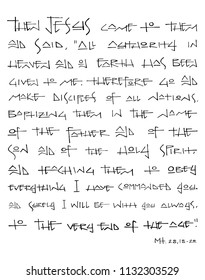 THEN JESUS CAME TO THEM
AND SAID, "ALL AUTHORITY IN
HEAVEN AND ON EARTH HAS BEEN
GIVEN TO ME. THEREFORE GO AND
MAKE DISCIPLES OF ALL NATIONS,
BAPTIZING THEM IN THE NAME
OF THE FATHER AND OF THE
SON AND OF THE HOLY SPIRIT
AND TEACHING THEM TO OBEY
EVERYTHING I HAVE COMMANDED YOU.
AND SURELY I WILL BE WITH YOU ALWAYS,
TO THE VERY END OF THE AGE."
Mt. 28,18-20
shutterstock.com · 1132303529